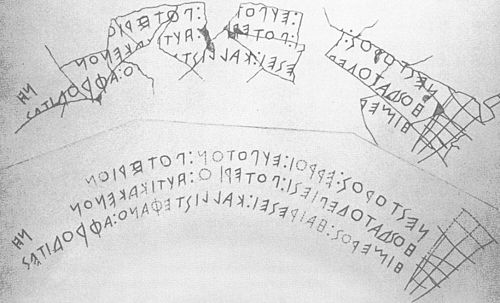 ΝΕΣΤΟΡΟΣ: Ε:ΕΥΠΟΤ ΠΟΤΕΡΙΟΝ
ΗΟΣΔΑΤΟΔΕΠ ΠΟΤΕΡΙ ΑΥΤΙΚΑΚΕΝΟΝ
ΗΙΜΕΡ ΕΣΕΙ:ΚΑΛΛΙΣΤ Ο:ΑΦΡΟΔΙΤΕΣ
ΝΕΣΤΟΡΟΣ:ΕΡΡΟΙ:ΕΥΠΟΤΟΝ:ΠΟΤΕΡΙΟΝ
ΗΟΣΔΑΤΟΔΕΠΙΕΣΙ:ΠΟΤΕΡΙΟ:ΑΥΤΙΚΑΚΕΝΟΝ
ΗΙΜΕΡΟΣ:ΗΑΙΡΕΣΕΙ:ΚΑΛΛΙΣΤΕΦΑΝΟ:ΑΦΡΟΔΙΤΕΣ